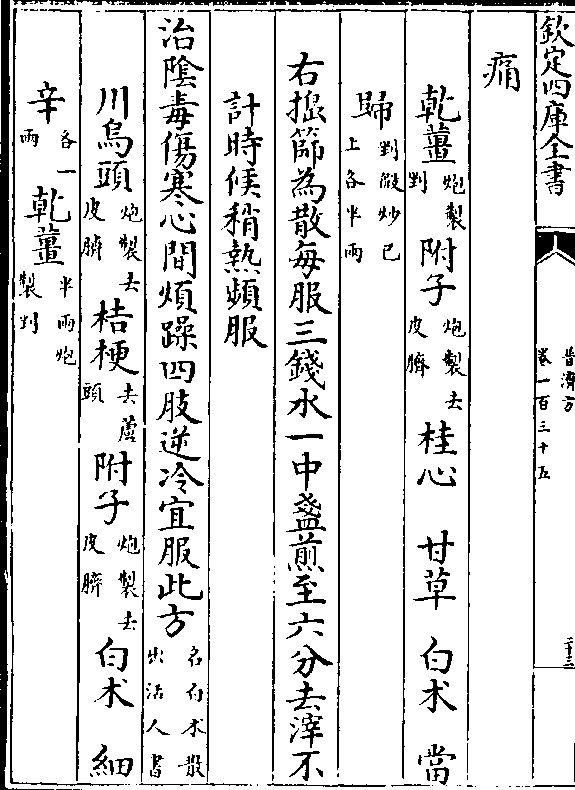 欽定四庫全書
普濟方
卷一百三十五
二十三
痛
乾薑炮製剉附子炮製去皮臍桂心 甘草 白朮 當
歸剉微炒已上各半兩
右搗篩為散每服三錢水一中盞煎至六分去滓不
計時候稍熱頻服
治陰毒傷寒心間煩躁四肢逆冷宜服此方名白朮散出活人書
川烏頭炮製去皮臍桔梗去蘆頭附子炮製去皮臍白朮 細
辛各一兩乾薑半兩炮製剉